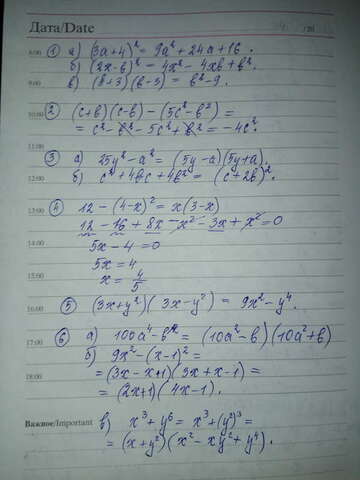 Дата/Date
8:00
① а) (3a+4)² = 9a² + 24a + 16.
б) (2x-b)² = 4x² - 4xb + b².
9:00
в) (b+3)(b-3) = b² - 9.
10:00
② (c+b)(c-b) - (5c²-b²) =
= c² - b² - 5c² + b² = -4c².
11:00
③ а) 25y² - a² = (5y-a)(5y+a).
12:00
б) c² + 4bc + 4b² = (c+2b)².
13:00
④ 12 - (4-x)² = x(3-x)
12 - 16 + 8x - x² - 3x + x² = 0
14:00
5x - 4 = 0
15:00
5x = 4
x = 4/5
16:00
⑤ (3x+y²)(3x-y²) = 9x² - y⁴.
17:00
⑥ а) 100a⁴ - b² = (10a²-b)(10a²+b)
б) 9x² - (x-1)² =
18:00
= (3x-x+1)(3x+x-1) =
= (2x+1)(4x-1).
Важное/Important
в) x³ + y⁶ = x³ + (y²)³ =
= (x+y²)(x² - xy² + y⁴).